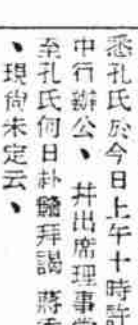 悉孔氏於今日上午十時許
中行辦公、幷出席理事
至孔氏何日朴贛拜謁 蔣
、現尙未定云、